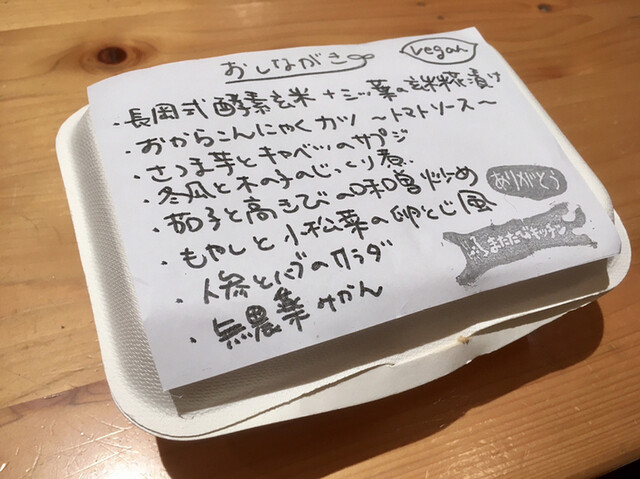 おしながき
vegan
・長岡式酵素玄米 + 三ッ葉の玄米糀漬け
・おからこんにゃくカツ 〜トマトソース〜
・さつま芋とキャベツのサブジ
・冬瓜と木の子のじっくり煮
・茄子と高きびの味噌炒め
・もやしと小松菜の卵とじ風
・人参とハブのサラダ
・無農薬みかん
ありがとう
またたびキッチン